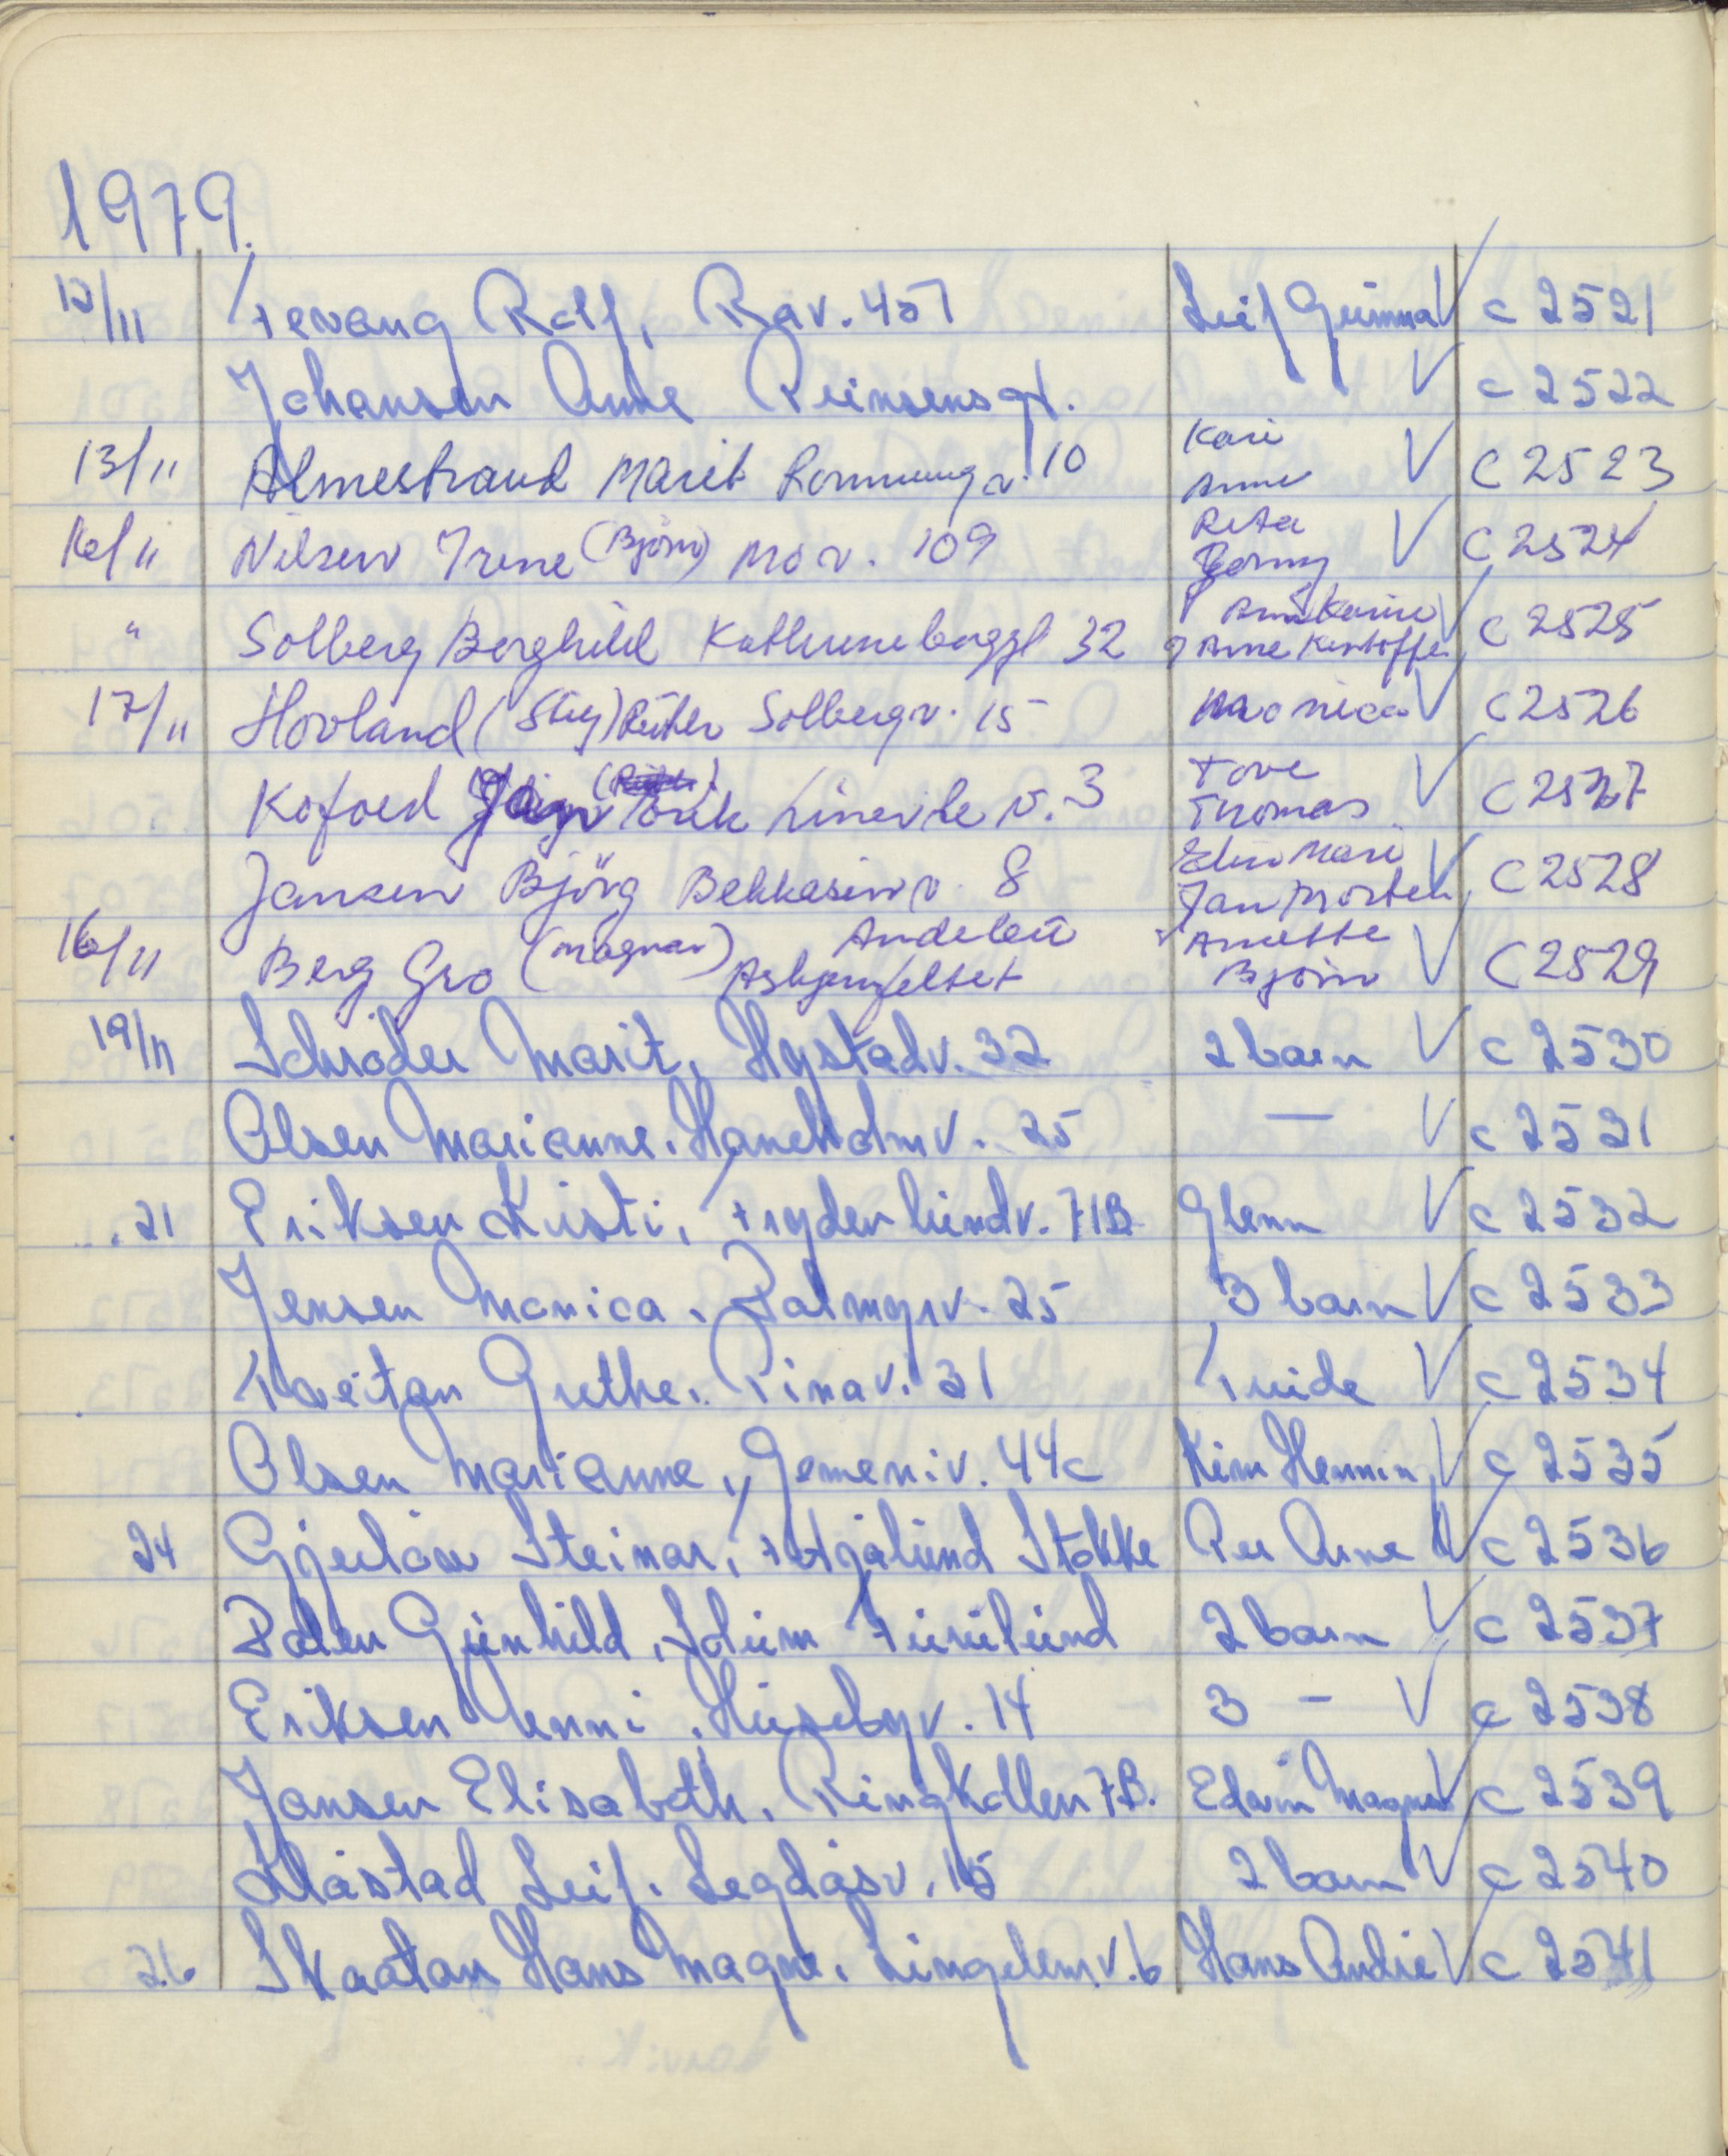 1979.
12/11 Tevang Rolf, Rav. 457 Leif Gunnar V c 2521
Johansen Anne Reinsensgt. V c 2522
13/11 Almestrand Marit 10 Kari Anne V C 2523
16/11 Nilsen Irene (Bjørn) Mo v. 109 Rita V C 2524
" Solberg Borghild Kathrineborggt 32 V C 2525
17/11 Hovland (Stig) Solbergv. 15 Monica V C 2526
Kofoed Erik v. 3 Tove Thomas V C 2527
Jansen Björg Bekkasinv. 8 Elin Mari Jan Morten V C 2528
16/11 Berg Gro (Magnar) Andebu Anette Bjørn V C 2529
19/11 Schrøder Marit, Hystadv. 32 2 barn V c 2530
Olsen Marianne. Haneholmv. 25 — V c 2521
21 Eriksen Kirsti, Frydenlundv. 71B Glenn V c 2532
Jensen Monica. Palmgrv. 25 3 barn V c 2533
Tveitan Grethe. Pinav. 31 V c 2534
Olsen Marianne, Gemeniv. 44c Kim Hennin V c 2535
24 Gjerløw Steinar, Stokke Per Arne V c 2536
Dalen Gunhild, Solum Furulund 2 barn V c 2537
Eriksen Jenni. Husebyv. 14 3 — V c 2538
Jansen Elisabeth. Ringkollen 7B. Edvin Magnus V c 2539
Klåstad Leif. Legdåsv. 15 2 barn V c 2540
26 Skaatan Hans Magne. Lingelemv. 6 Hans André V c 2541